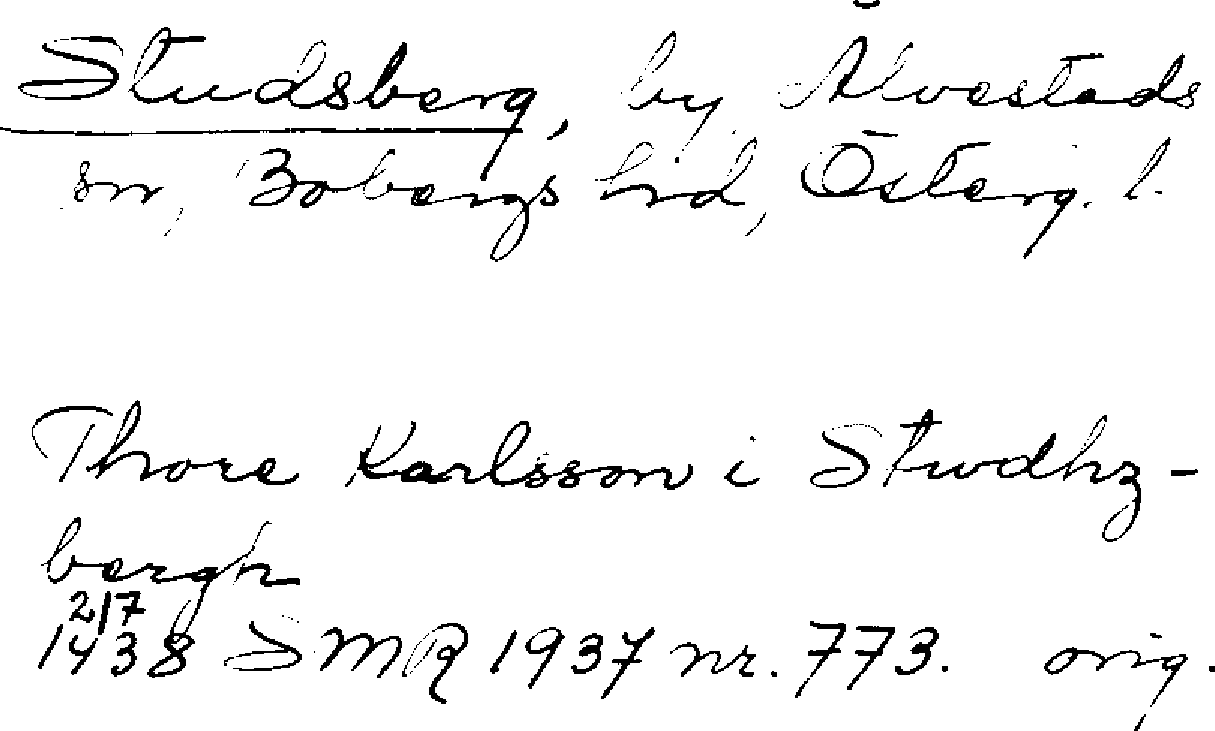 Studsberg, by Älvestads
sn, Bobergs hd, Österg. l.
Thore Karlsson i Stwdhz-
bergh
2/7
1438 SMR 1937 nr. 773. orig.